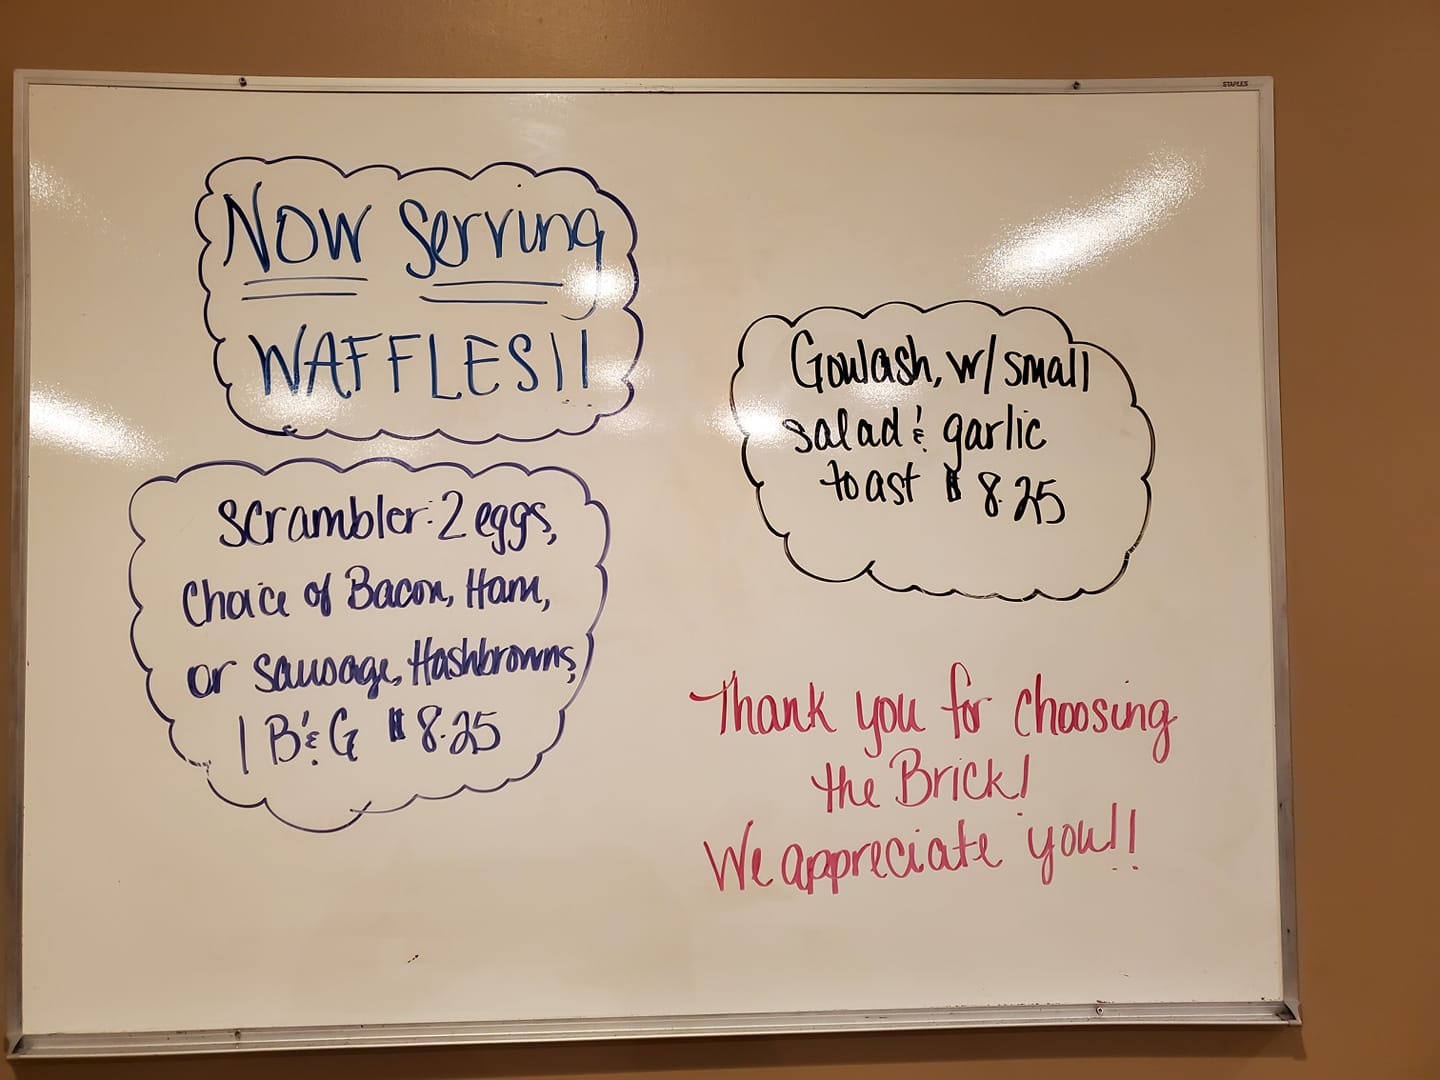 STAPLES
Now Serving
WAFFLES!!
Scrambler: 2 eggs,
Choice of Bacon, Ham,
or Sausage, Hashbrowns,
1 B & G $8.25
Goulash, w/ small
salad & garlic
toast $8.25
Thank you for choosing
the Brick!
We appreciate you!!